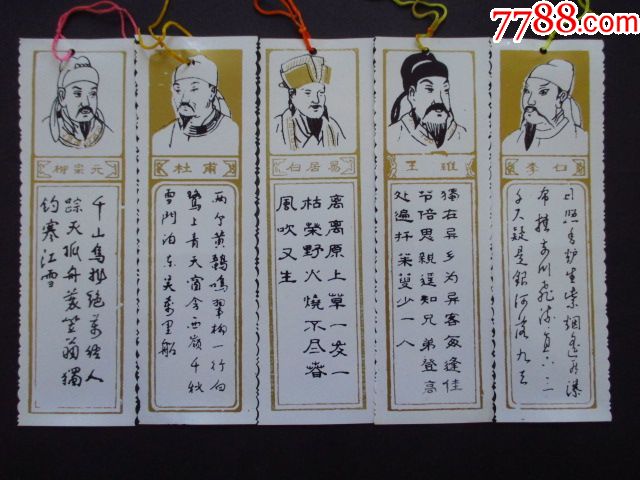 7788.com
中国收藏热线
柳宗元
千山鸟飛絕萬徑人
踪灭孤舟蓑笠翁獨
钓寒江雪
杜甫
两个黄鸝鳴翠柳一行白
鹭上青天窗含西嶺千秋
雪門泊东吴萬里船
白居易
离离原上草一岁一
枯榮野火燒不尽春
風吹又生
王維
獨在异乡为异客每逢佳
节倍思親遥知兄弟登高
处遍插茱萸少一人
李白
日照香炉生紫烟遥看瀑
布挂前川飛流直下三
千尺疑是銀河落九天